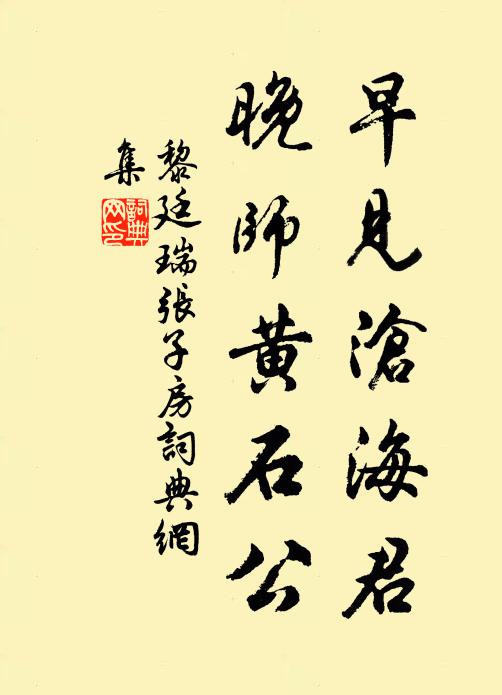 早見滄海君
晚師黄石公
黎廷瑞張子房詞典網
集
詞典
網印